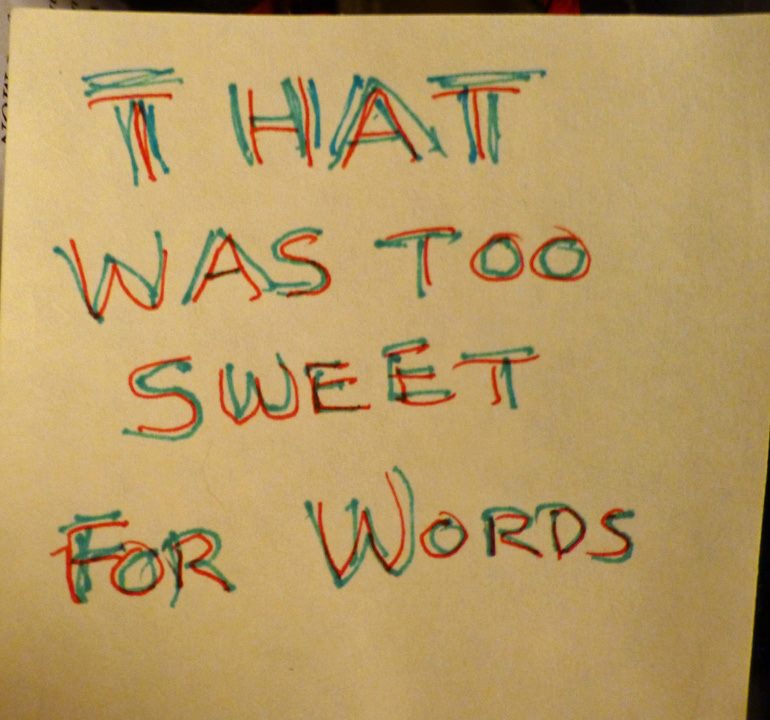 THAT
WAS TOO
SWEET
FOR WORDS